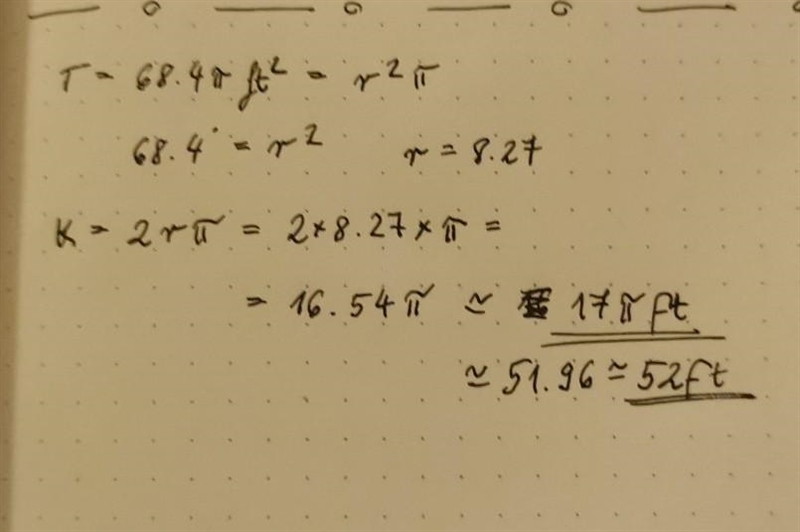 T = 68.4π ft² = r²π
68.4 = r² r = 8.27
K = 2rπ = 2×8.27×π =
= 16.54π ≃ 17π ft
≃ 51.96 ≃ 52ft